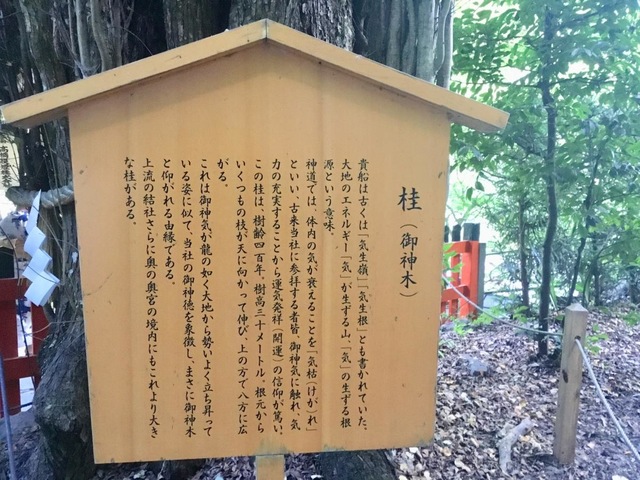 桂（御神木）
貴船は古くは「気生嶺」「気生根」とも書かれていた。
大地のエネルギー「気」が生ずる山、「気」の生ずる根
源という意味。
神道では、体内の気が衰えることを「気枯（けが）れ」
といい、古来当社に参拝する者皆、御神気に触れ、気
力の充実することから運気発祥（開運）の信仰が篤い。
この桂は、樹齢四百年、樹高三十メートル。根元から
いくつもの枝が天に向かって伸び、上の方で八方に広
がる。
これは御神気が龍の如く大地から勢いよく立ち昇って
いる姿に似て、当社の御神徳を象徴し、まさに御神木
と仰がれる由縁である。
上流の結社さらに奥の奥宮の境内にもこれより大き
な桂がある。